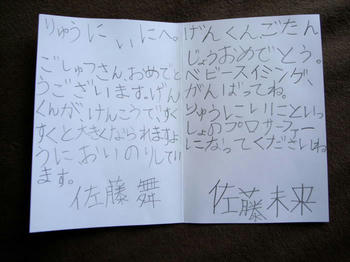 りゅうにいにへ。
ごしゅっさん、おめでと
うございます。げん
くんが、けんこうで、すく
すくと大きくなられますよ
うにおいのりしてい
ます。
佐藤舞
げんくん、ごたん
じょうおめでとう。
ベビースイミング、
がんばってね。
りゅうにいにといっ
しょのプロサーファー
になってくださいね
佐藤未来